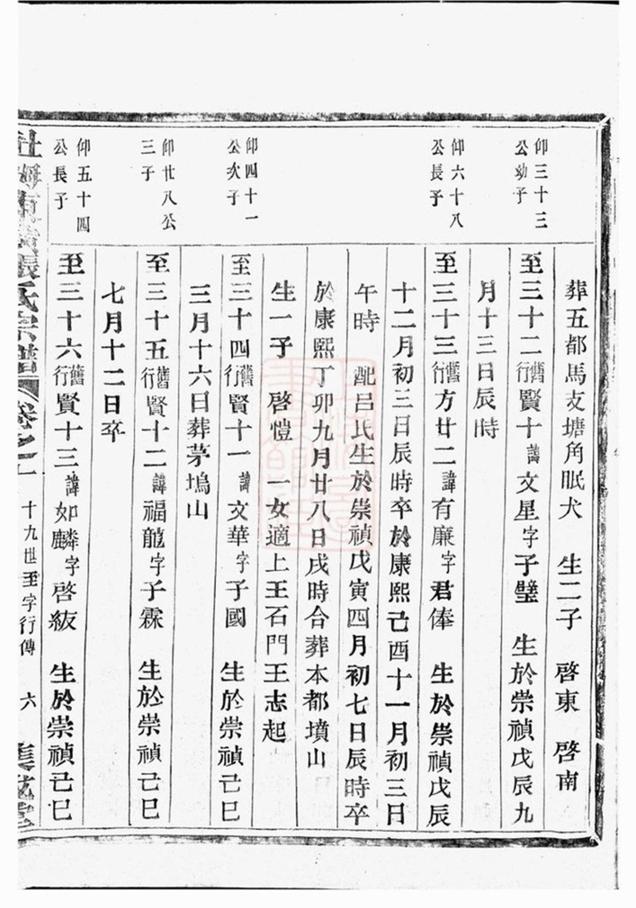 葬五都馬支塘角眠犬　生二子　啓東　啓南
仰三十三
公幼子
至三十二舊行賢十諱文星字子璧　生於崇禎戊辰九
月十三日辰時
仰六十八
公長子
至三十三舊行方廿二諱有廉字君俸　生於崇禎戊辰
十二月初三日辰時卒於康熙己酉十一月初三日
午時　配呂氏生於崇禎戊寅四月初七日辰時卒
於康熙丁卯九月廿八日戌時合葬本都墳山
生一子　啓愷　一女適上王石門王志起
仰四十一
公次子
至三十四舊行賢十一諱文華字子國　生於崇禎己巳
三月十六日葬茅塢山
仰廿八公
三子
至三十五舊行賢十二諱福龍字子霖　生於崇禎己巳
七月十二日卒
仰五十四
公長子
至三十六舊行賢十三諱如麟字啓紱　生於崇禎己巳
張氏宗譜　卷之一　十九世至字行傳　六